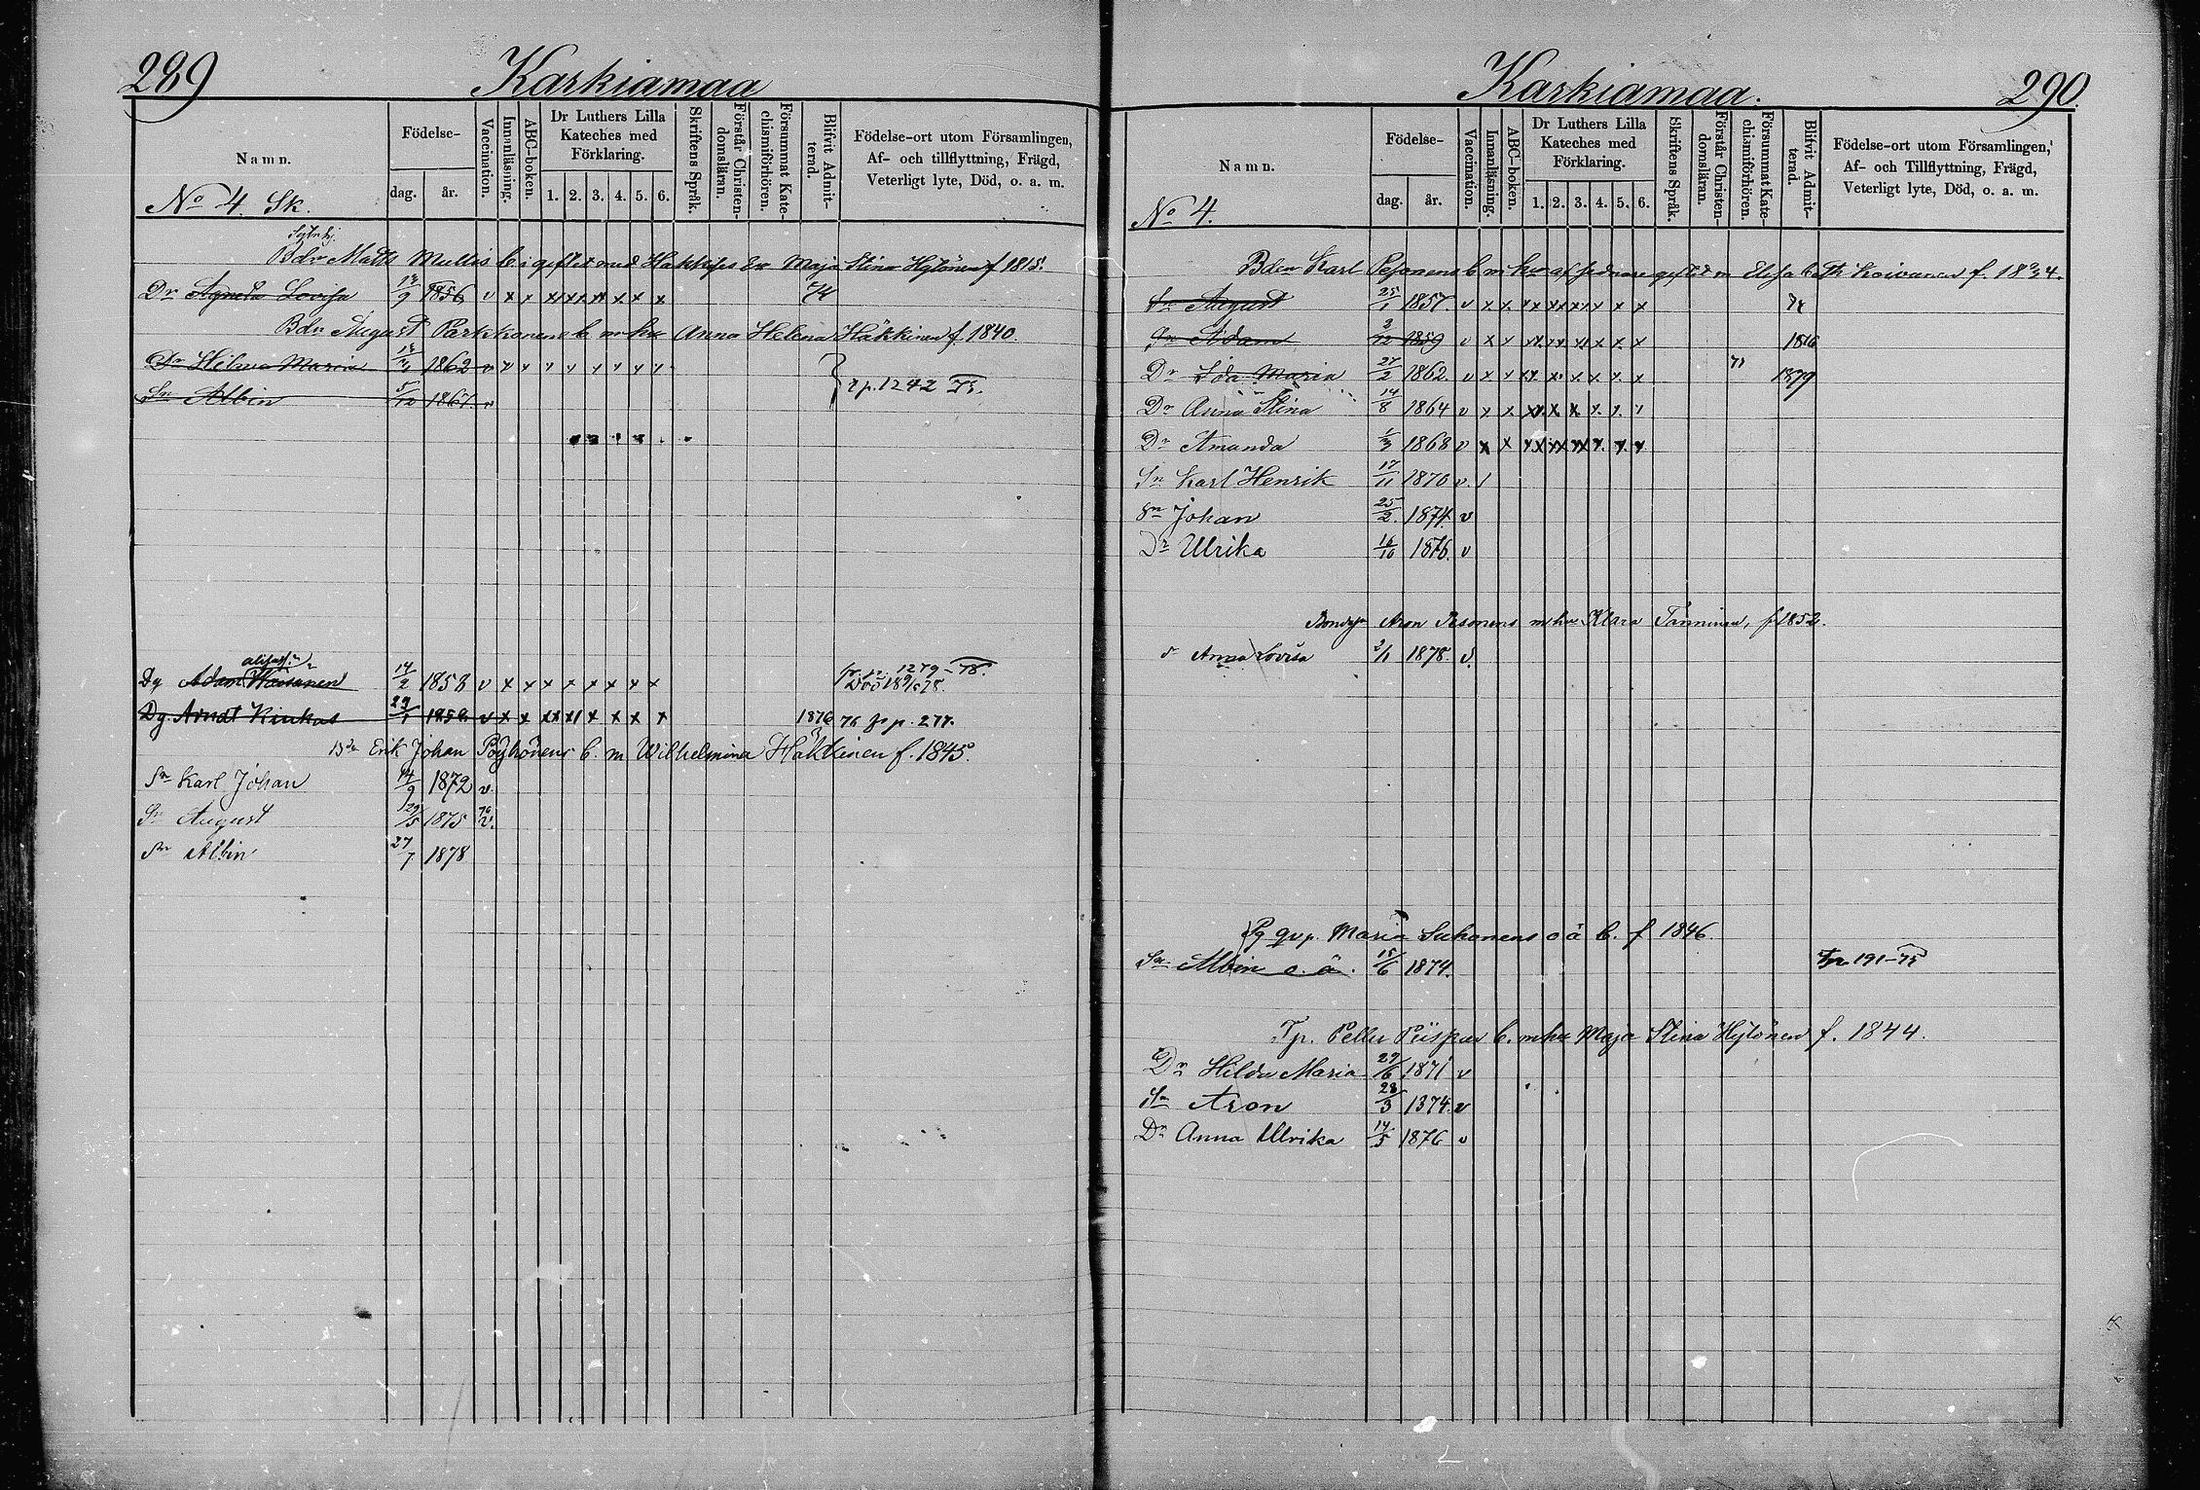 289 Karkiamaa
Namn. Födelse- dag. år. Vaccination. Innanläsning. ABC-boken. Dr Luthers Lilla Kateches med Förklaring. 1. 2. 3. 4. 5. 6. Skriftens Språk. Förstår Christendomsläran. Försummat Katechismiförhören. Blifvit Admitterad. Födelse-ort utom Församlingen, Af- och tillflyttning, Frägd, Veterligt lyte, Död, o. a. m.
No 4. Sk.
Bdn Matts Mullis b. i giftet med Häkkises Maja Stina Hytönen f 1815.
Dr Agneta Lovisa 9 1856 v x x x x x x x x x x 74
Bdn August Parkkonens b. m hu Anna Helena Häkkinen f. 1840.
Dr Hilma Maria 1862 v
Sn Albin 5/12 1867. v } p. 1242 75.
Dg Adam Wäisänen 14/2 1853 v x x x x x x x x 1279 - 78.
Dg. Arndt Kinkas 29/1 v x x x x x x x x x 1876 76 p. 277.
Bdn Erik Johan Pöyhönens b. m Wilhelmina Häkkinen f. 1845.
Sn Karl Johan 14/9 1872 v.
Sn August 29/5 1875 76 v.
Sn Albin 27/7 1878
Karkiamaa. 290.
Namn. Födelse- dag. år. Vaccination. Innanläsning. ABC-boken. Dr Luthers Lilla Kateches med Förklaring. 1. 2. 3. 4. 5. 6. Skriftens Språk. Förstår Christendomsläran. Försummat Katechismiförhören. Blifvit Admitterad. Födelse-ort utom Församlingen, Af- och Tillflyttning, Frägd, Veterligt lyte, Död, o. a. m.
No 4.
Bdn Karl Pesonens b m hu Elisabeth Koivunen f. 1834.
Sn August 25/1 1857. v x x x x x x x x x x
Sn Adam 2/12 1859 v x x x x x x x x x 1876
Dr Ida Maria 27/2 1862. v x x x x x x x x x 71 1879
Dr Anna Stina 14/8 1864 v x x x x x x x x x
Dr Amanda 1/3 1868 v x x x x x x x x x x
Sn Karl Henrik 17/11 1870 v. /
Sn Johan 25/2. 1874. v
Dr Ulrika 16/10 1876. v
Aron Pesonens m hu Klara Tänninen, f 1852.
d Anna Lovisa 2/1 1878. v.
Maria Suhonens o ä b. f 1846.
Sn Albin o. ä. 15/6 1874. 191-75
Tp. Pelle Piispas b. m hu Maja Stina Hytönen f. 1844.
Dr Hilda Maria 29/6 1871 v
Sn Aron 28/3 1874. v
Dr Anna Ulrika 14/5 1876 v